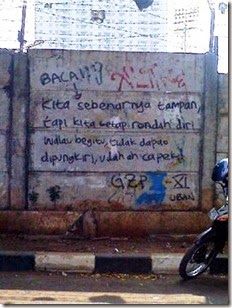 BACA!!!
Kita sebenarnya tampan,
tapi kita tetap rendah diri
walau begitu, tidak dapat
dipungkiri, udah ah capek!
GZP XI
UBAN